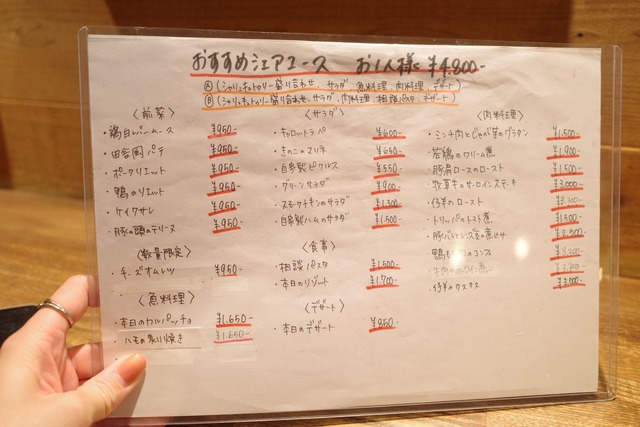 おすすめシェアコース お1人様 ¥4.800-
Ⓐ (シャルキュトゥリー盛り合わせ、サラダ、魚料理、肉料理、デザート)
Ⓑ (シャルキュトゥリー盛り合わせ、サラダ、肉料理、相談パスタ、デザート)
〈前菜〉
・鶏白レバームース ¥950-
・田舎風パテ ¥950-
・ポークリエット ¥950-
・鴨のリエット ¥950-
・ケイクサレ ¥950-
・豚の頭のテリーヌ ¥950-
〈数量限定〉
・チーズオムレツ ¥950-
〈魚料理〉
・本日のカルパッチョ ¥1.650-
・ハモの炙り焼き ¥1.650-
〈サラダ〉
・キャロットラペ ¥600-
・きのこのマリネ ¥650-
・自家製ピクルス ¥550-
・グリーンサラダ ¥900-
・スモークチキンのサラダ ¥1.300-
・自家製ハムのサラダ ¥1.500-
〈食事〉
・相談パスタ ¥1.500-
・本日のリゾット ¥1.700-
〈デザート〉
・本日のデザート ¥850-
〈肉料理〉
・ミンチ肉とじゃが芋のグラタン ¥1.500-
・若鶏のクリーム煮 ¥1.900-
・豚肩ロースのロースト ¥1.500-
・牧草牛のサーロインステーキ ¥3.000-
・仔羊のロースト
・トリッパのトマト煮 ¥1500-
・豚バラとレンズ豆の煮込み ¥2.500-
・鴨もも肉のコンフィ ¥3.200-
・仔羊のクスクス ¥3.000-